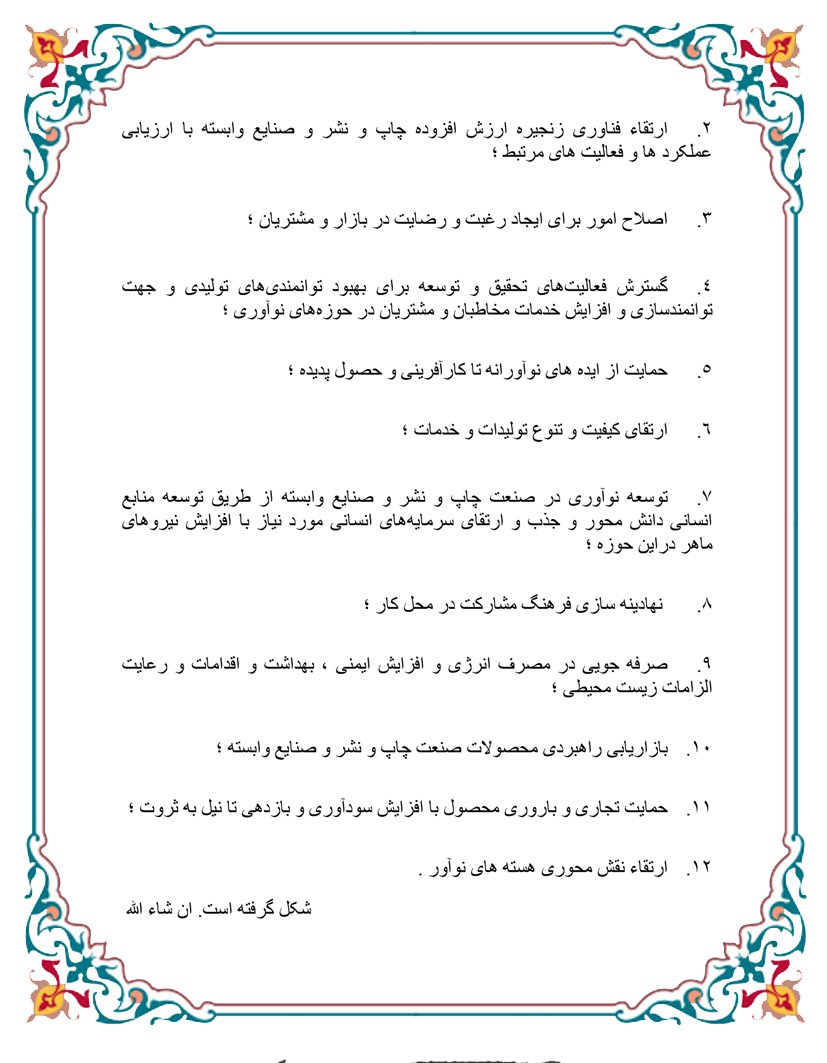 ۲. ارتقاء فناوری زنجیره ارزش افزوده چاپ و نشر و صنایع وابسته با ارزیابی
عملکرد ها و فعالیت های مرتبط ؛
۳. اصلاح امور برای ایجاد رغبت و رضایت در بازار و مشتریان ؛
٤. گسترش فعالیت‌های تحقیق و توسعه برای بهبود توانمندی‌های تولیدی و جهت
توانمندسازی و افزایش خدمات مخاطبان و مشتریان در حوزه‌های نوآوری ؛
٥. حمایت از ایده های نوآورانه تا کارآفرینی و حصول پدیده ؛
٦. ارتقای کیفیت و تنوع تولیدات و خدمات ؛
۷. توسعه نوآوری در صنعت چاپ و نشر و صنایع وابسته از طریق توسعه منابع
انسانی دانش محور و جذب و ارتقای سرمایه‌های انسانی مورد نیاز با افزایش نیروهای
ماهر دراین حوزه ؛
۸. نهادینه سازی فرهنگ مشارکت در محل کار ؛
۹. صرفه جویی در مصرف انرژی و افزایش ایمنی ، بهداشت و اقدامات و رعایت
الزامات زیست محیطی ؛
۱۰. بازاریابی راهبردی محصولات صنعت چاپ و نشر و صنایع وابسته ؛
۱۱. حمایت تجاری و باروری محصول با افزایش سودآوری و بازدهی تا نیل به ثروت ؛
۱۲. ارتقاء نقش محوری هسته های نوآور .
شکل گرفته است. ان شاء الله